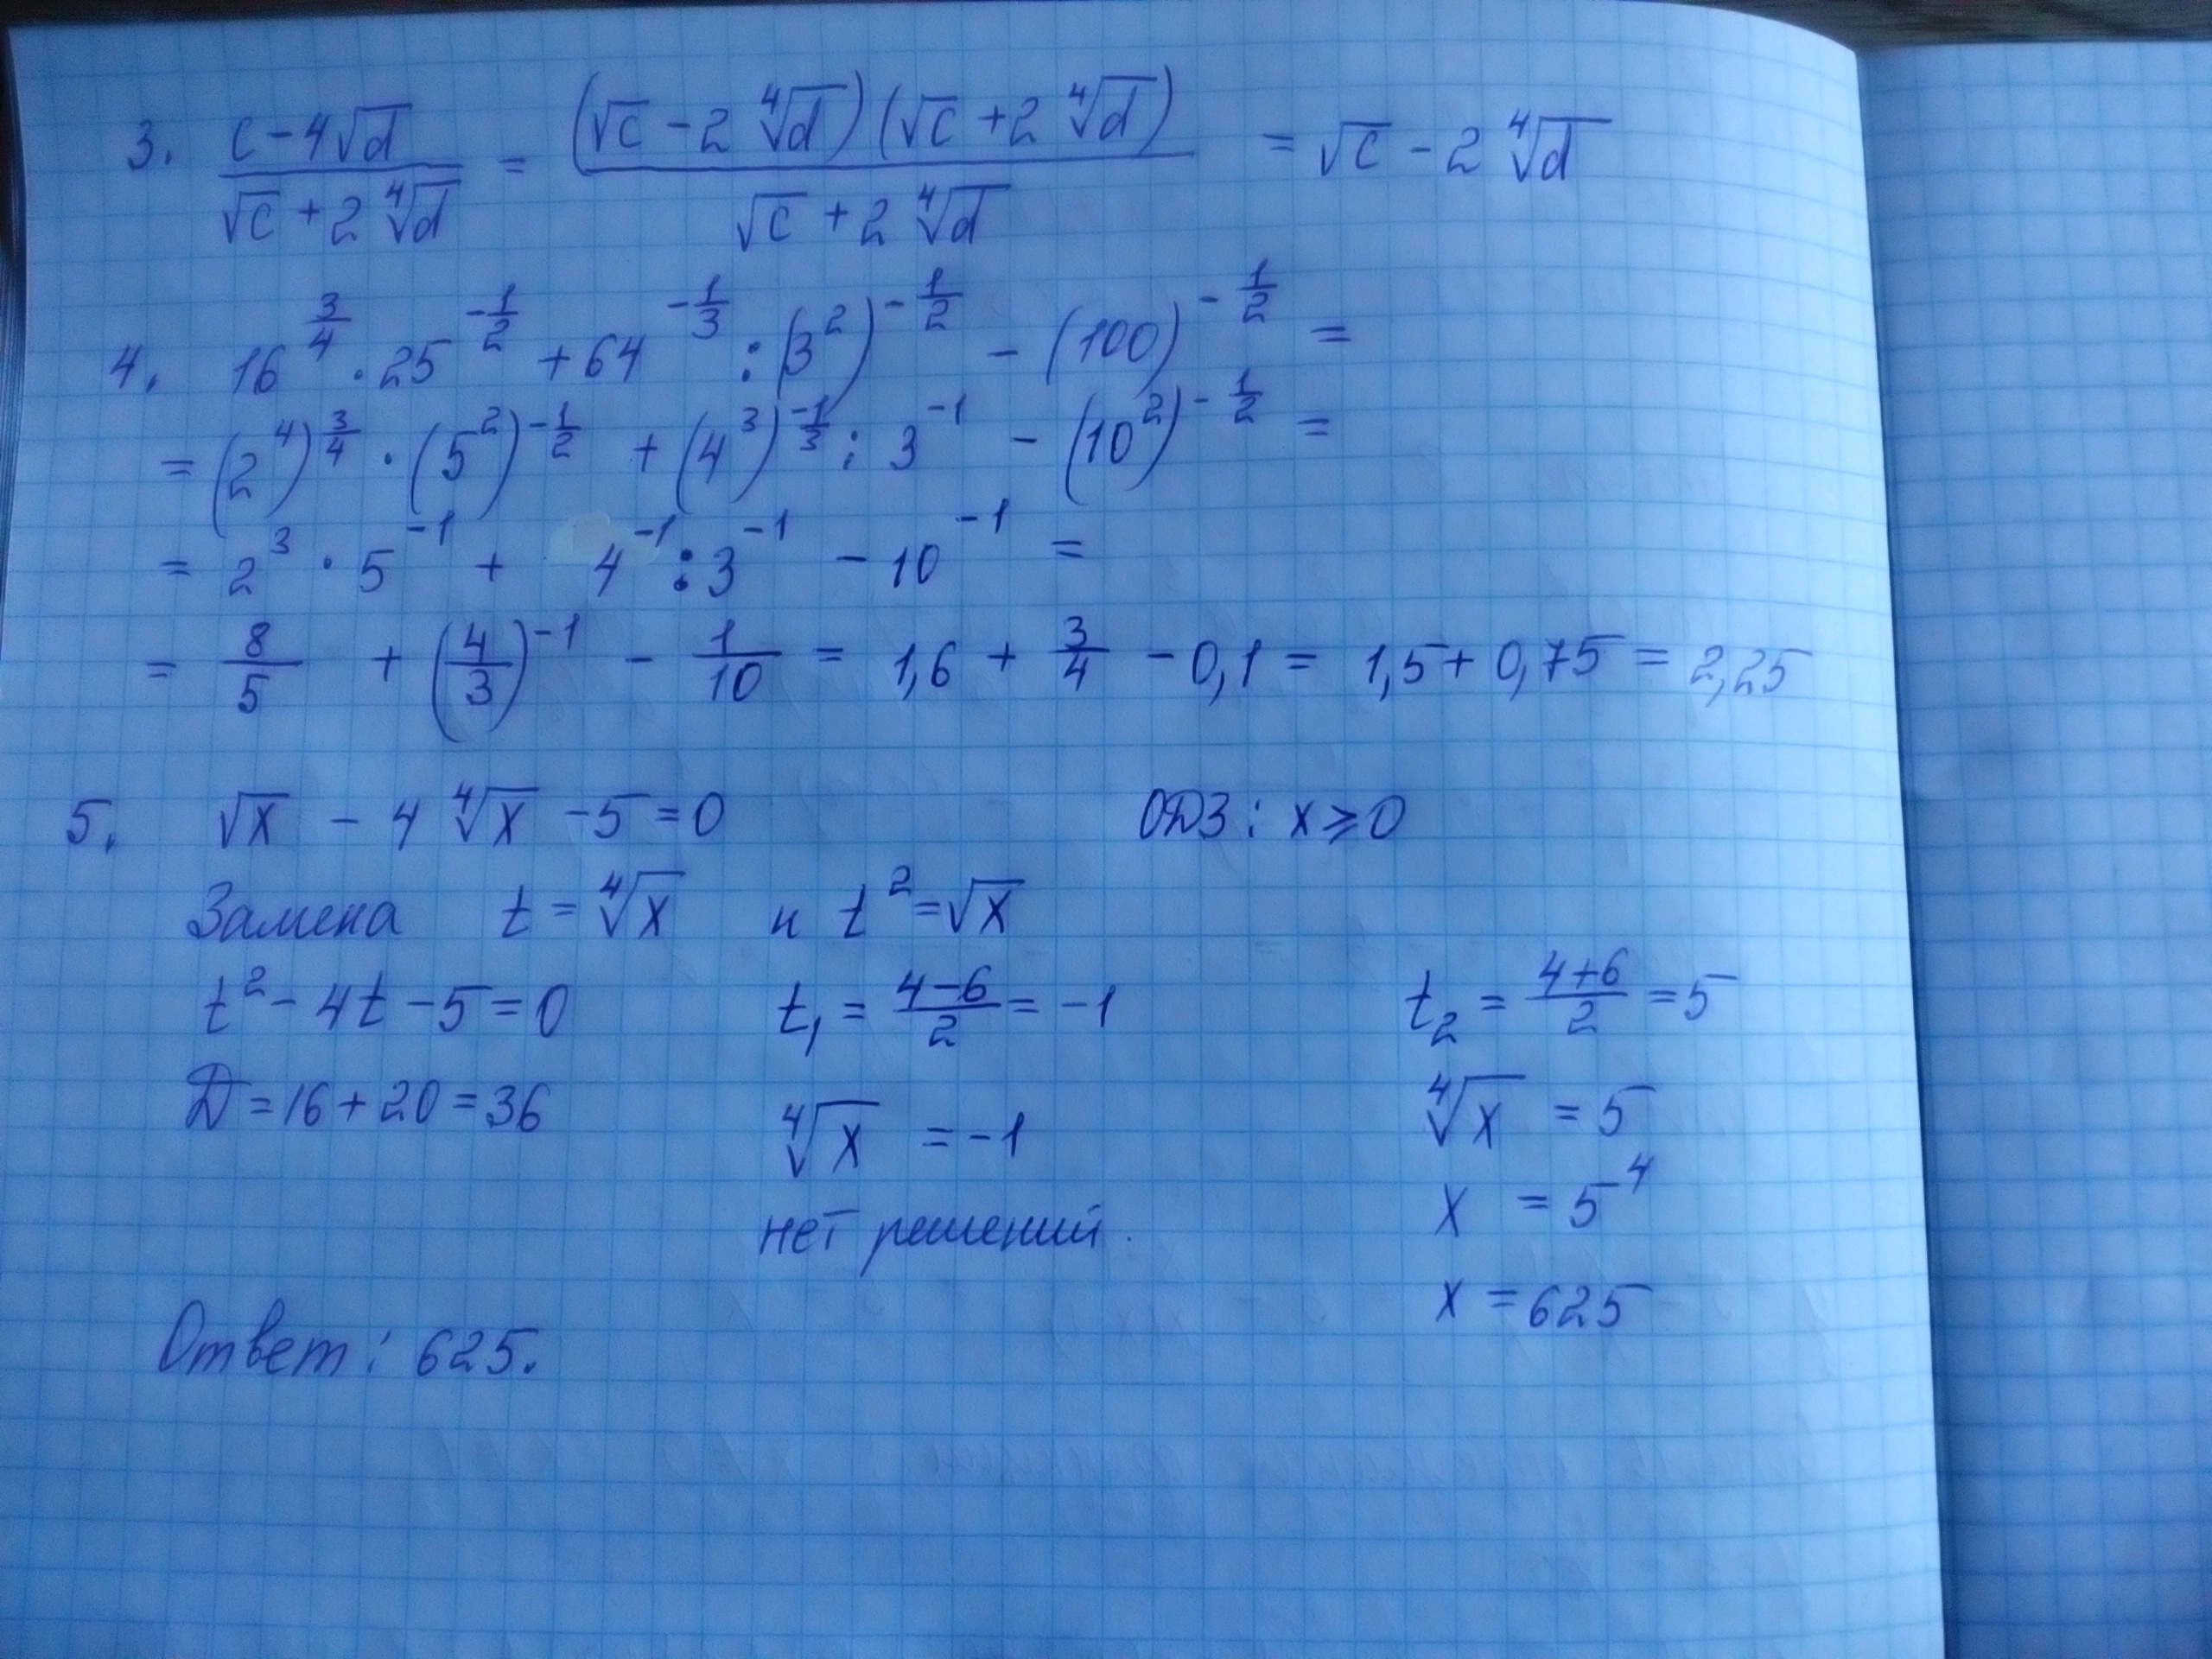 3. (c-4√d)/(√c+2∜d) = ((√c-2∜d)(√c+2∜d))/(√c+2∜d) = √c-2∜d
4. 16^(3/4) · 25^(-1/2) + 64^(-1/3) : (3²)^(-1/2) - (100)^(-1/2) =
= (2⁴)^(3/4) · (5²)^(-1/2) + (4³)^(-1/3) : 3⁻¹ - (10²)^(-1/2) =
= 2³ · 5⁻¹ + 4⁻¹ : 3⁻¹ - 10⁻¹ =
= 8/5 + (4/3)⁻¹ - 1/10 = 1,6 + 3/4 - 0,1 = 1,5 + 0,75 = 2,25
5. √x - 4∜x - 5 = 0 ОДЗ: x ⩾ 0
Замена t = ∜x и t² = √x
t² - 4t - 5 = 0 t₁ = (4-6)/2 = -1 t₂ = (4+6)/2 = 5
D = 16 + 20 = 36 ∜x = -1 ∜x = 5
нет решений. x = 5⁴
x = 625
Ответ: 625.